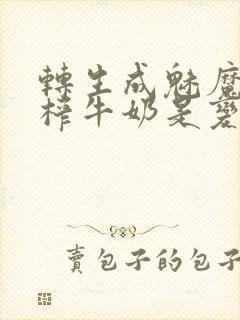 轉生成魅魔
榨牛奶是變
賣包子的包子